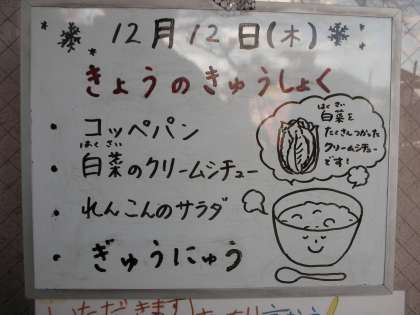 12月12日(木)
きょうのきゅうしょく
・コッペパン
はくさい
・白菜のクリームシチュー
・れんこんのサラダ
・ぎゅうにゅう
はくさい
白菜を
たくさんつかった
クリームシチュー
です!
いただきます